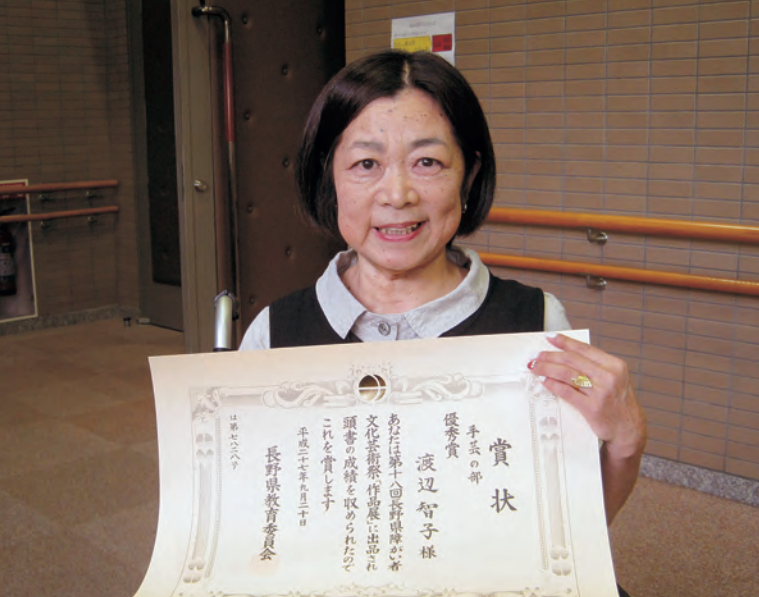 賞状
手芸の部
優秀賞
渡辺智子様
あなたは第十八回長野県障がい者
文化芸術祭「作品展」に出品され
頭書の成績を収められたので
これを賞します
平成二十七年九月二十日
長野県教育委員会
は第七八二八号